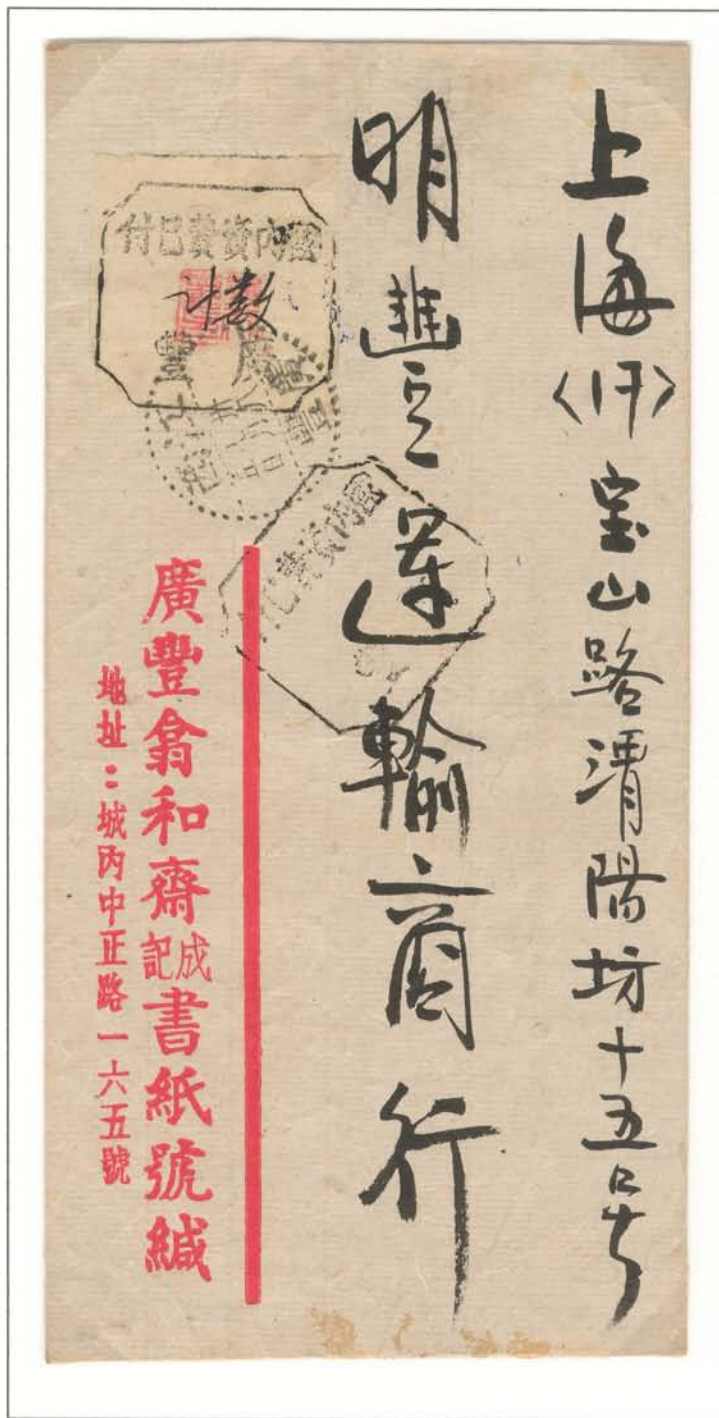 上海〈1仟〉宝山路渭陽坊十五号
明進運輸商行
國內資費已付
計数
廣豐
國內資費已付
廣豐翕和齋成記書紙號緘
地址：城內中正路一六五號